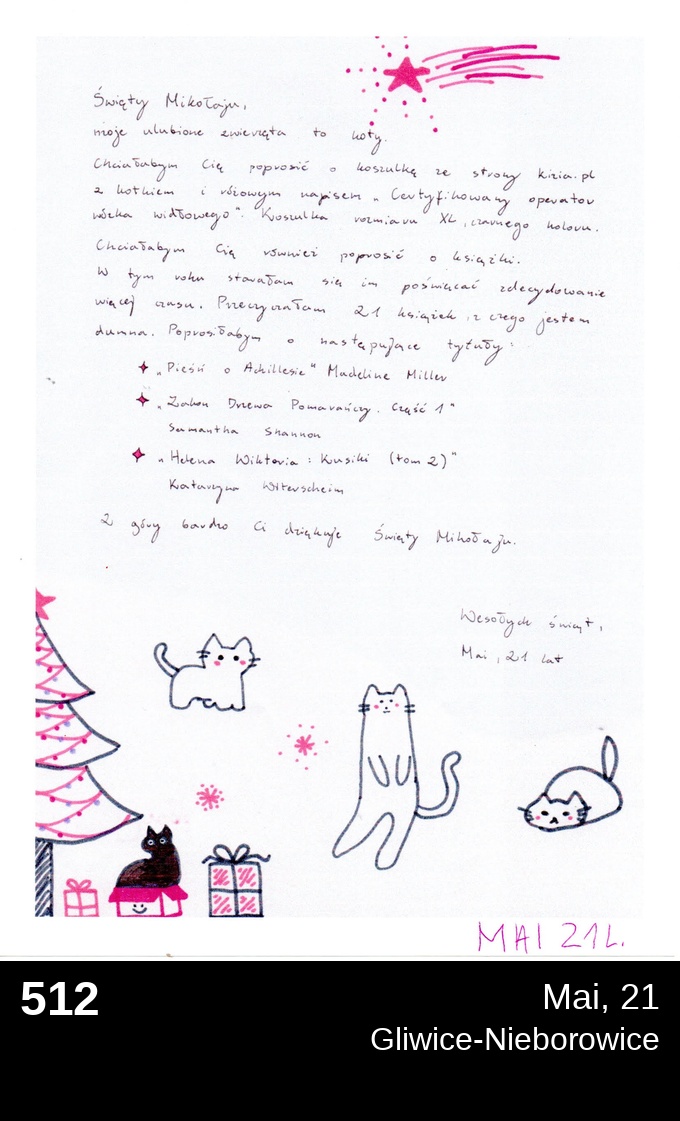 Święty Mikołaju,
moje ulubione zwierzęta to koty.
Chciałabym Cię poprosić o koszulkę ze strony kizia.pl
z kotkiem i różowym napisem „Certyfikowany operator
wózka widłowego". Koszulka rozmiaru XL, czarnego koloru.
Chciałabym Cię również poprosić o książki.
W tym roku starałam się im poświęcać zdecydowanie
więcej czasu. Przeczytałam 21 książek, z czego jestem
dumna. Poprosiłabym o następujące tytuły:
„Pieśń o Achillesie" Madeline Miller
„Zakon Drzewa Pomarańczy. Część 1"
Samantha Shannon
„Helena Wiktoria: Kusiki (tom 2)"
Katarzyna Witerscheim
Z góry bardzo Ci dziękuje Święty Mikołaju.
Wesołych świąt,
Mai, 21 lat
MAI 21L.
512
Mai, 21
Gliwice-Nieborowice